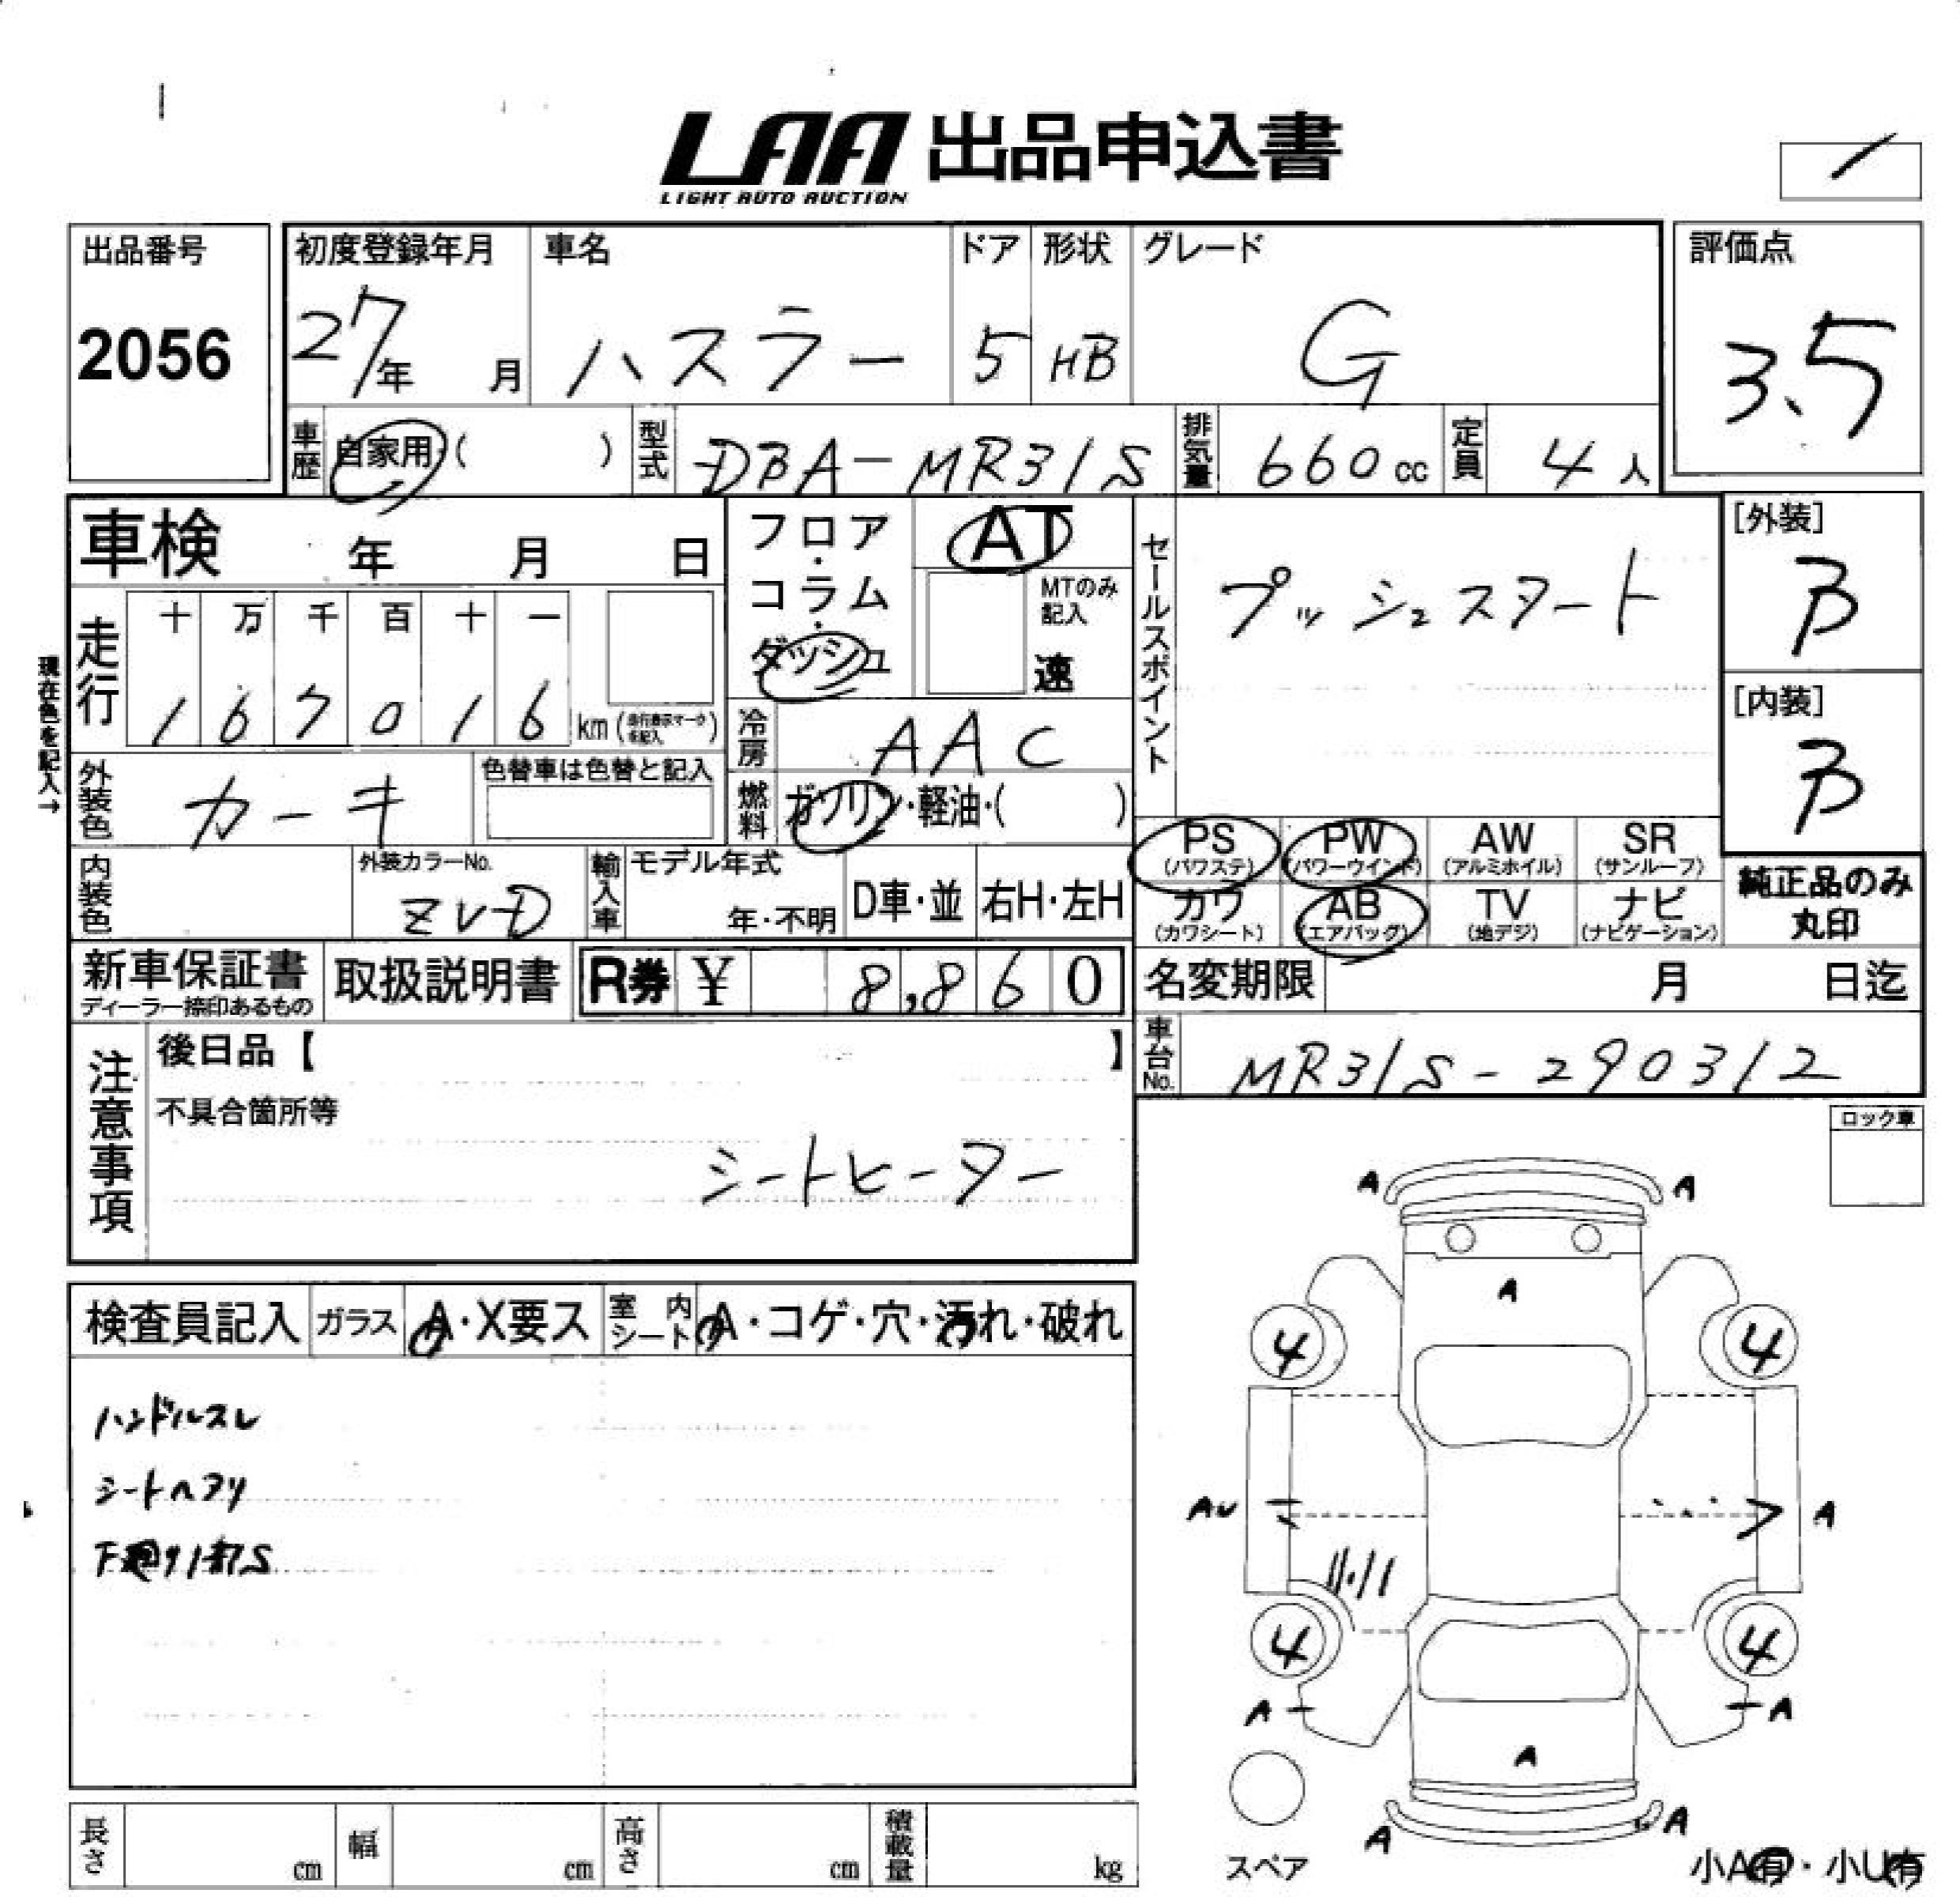 LAA 出品申込書
LIGHT AUTO AUCTION
出品番号
2056
初度登録年月
27年 月
車名
ハスラー
ドア
5
形状
HB
グレード
G
評価点
3.5
車歴 自家用( )
型式 DBA-MR31S
排気量 660 cc
定員 4 人
車検 年 月 日
フロア・コラム・ダッシュ
AT
MTのみ記入
速
セールスポイント
プッシュスタート
[外装]
B
[内装]
B
現在色を記入→
走行
十 万 千 百 十 一
1 6 7 0 1 6 km (走行表示マークを記入)
冷房 AAC
外装色 カーキ
色替車は色替と記入
燃料 ガソリン・軽油・( )
PS (パワステ)
PW (パワーウインド)
AW (アルミホイル)
SR (サンルーフ)
カワ (カワシート)
AB (エアバッグ)
TV (地デジ)
ナビ (ナビゲーション)
純正品のみ
丸印
内装色
外装カラーNo.
ZVD
輸入車
モデル年式
年・不明
D車・並
右H・左H
新車保証書
ディーラー捺印あるもの
取扱説明書
R券 ¥ 8,860
名変期限 月 日迄
車台No. MR31S-290312
注意事項
後日品【 】
不具合箇所等
シートヒーター
ロック車
検査員記入 ガラス A・X要ス 室内シート A・コゲ・穴・汚れ・破れ
ハンドルスレ
シートヘタリ
下廻り錆S
A A
A
4 4
AU A
4 4
A A
A
A A
スペア
小A有・小U有
長さ cm 幅 cm 高さ cm 積載量 kg